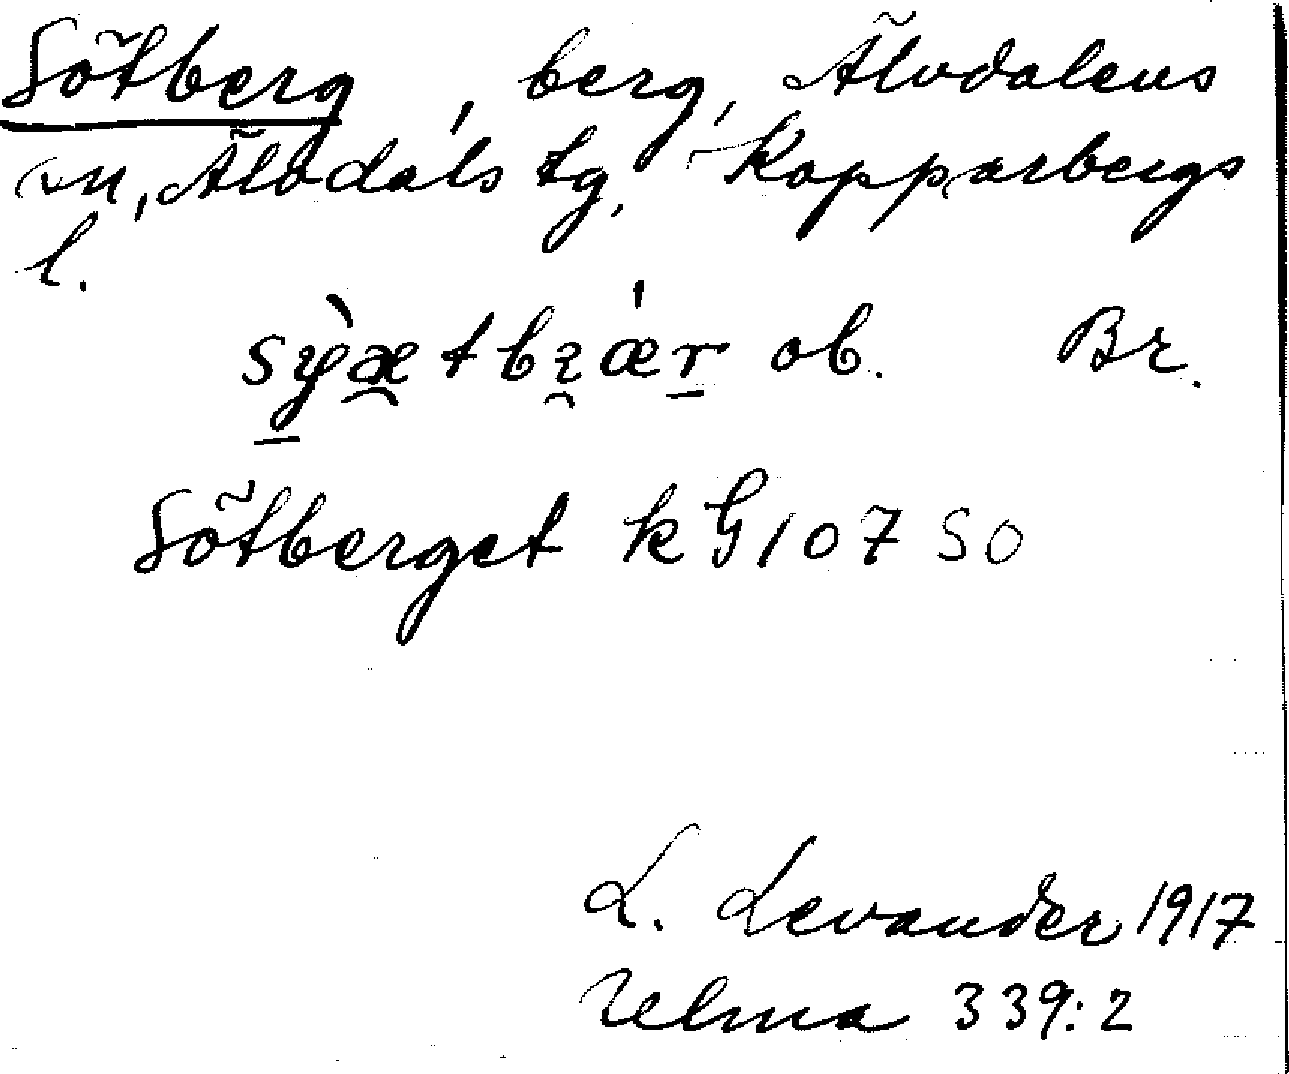 Sötberg, berg, Älvdalens
sn, Älvdals tg, Kopparbergs
l.
sỳæ̯tbɪ̯ǽr̠ ob. Br.
Sötberget k G 107 SO
L. Levander 1917
Ulma 339:2